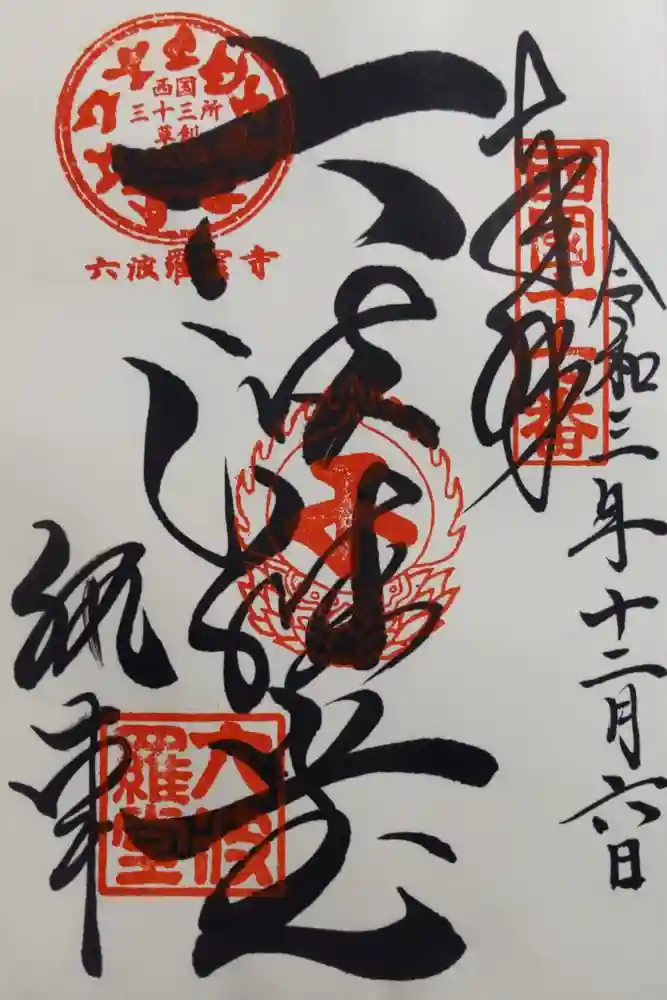 奉拝
西國十七番
令和三年十二月六日
六波羅堂
西国
三十三所
草創
六波羅蜜寺
執事
六波
羅堂